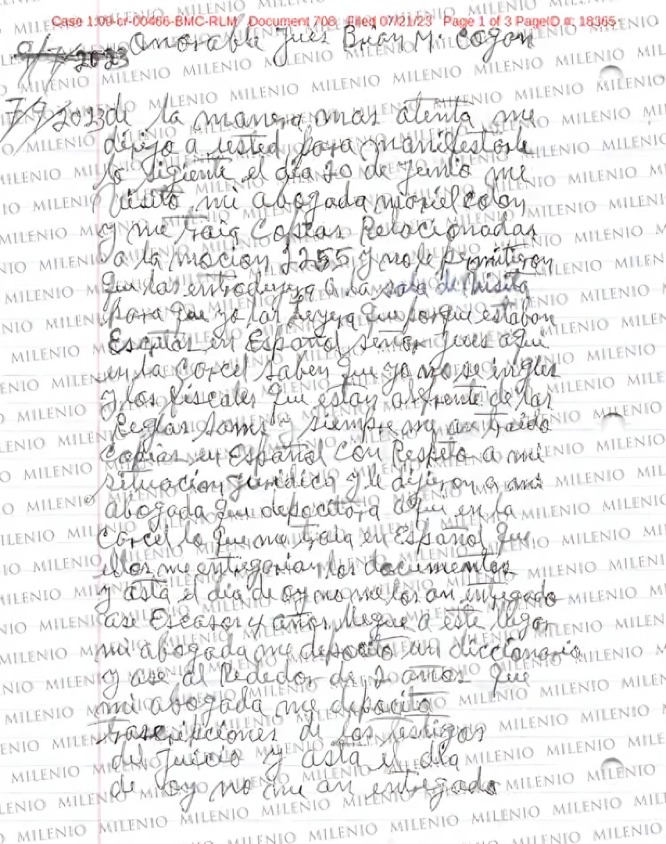 Case 1:09-cr-00466-BMC-RLM Document 708 Filed 07/21/23 Page 1 of 3 PageID #: 18365
Onorable Jues Brian M. Cogan
7/9/2023 de la manera mas atenta me
dirijo a usted para manifestarle
lo siguiente el dia 20 de Junio me
visito mi abogada mariel colon
y me traia Copias Relacionadas
a la mocion 2255 y no le permitieron
que las introdujera a la sala de visita
para que yo las leyera que porque estaban
Escritas en Español señor jues aqui
en la Corcel saben que yo no se ingles
y los fiscales que estan al frente de las
Reglas y siempre me an traido
Copias en Español Con Respeto a mi
situacion juridica y le dijeron a mi
abogada que depocitara aqui en la
Corcel lo que me traia en Español que
ellos me entregarian los documentos
y asta el dia de oy no me los an entregado
ase Escasos 4 años llegue a este lugar
mi abogada me deposito un diccionario
y ase al Rededor de 2 años que
mi abogada me deposito
trascripciones de los testigos
del juicio y asta el dia
de oy no me an entregado
MILENIO